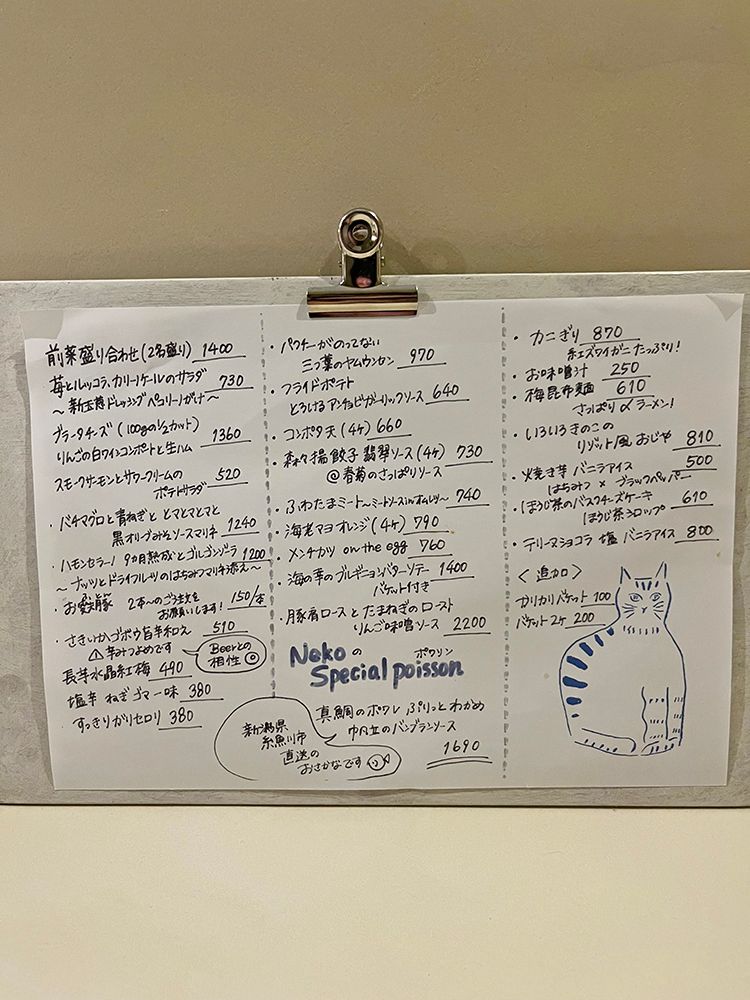 前菜盛り合わせ(2名盛り) 1400
苺とルッコラ、カリーノケールのサラダ 730
〜新玉葱ドレッシング ペコリーノがけ〜
ブラータチーズ(100gの1/2カット)
りんごの白ワインコンポートと生ハム 1360
スモークサーモンとサワークリームの 520
ポテトサラダ
・バチマグロと青ねぎと とマとマとマと
黒オリーブみそソースマリネ 1240
・ハモンセラーノ 9カ月熟成とゴルゴンゾーラ 1200
〜ナッツとドライフルーツのはちみつマリネ添え〜
・お豚 2本〜のご注文を
お願いします! 150/本
・さきいかゴボウ旨辛和え 510
⚠辛みつよめです
Beerとの
相性◎
長芋水晶紅梅 490
塩辛 ねぎゴマ一味 380
・すっきりガリセロリ 380
・パクチーがのってない
三つ葉のヤムウンセン 970
・フライドポテト
とろけるアンチョビガーリックソース 640
・コンポタ天(4ヶ) 660
・森々揚餃子 翡翠ソース(4ヶ) 730
@春菊のさっぱりソース
・ふわたまミート〜ミートソースinオムレツ〜 740
・海老マヨ オレンジ(4ヶ) 790
・メンチカツ on the egg 760
・海の幸のブルギニョンバターソテー 1400
バケット付き
・豚肩ロースとたまねぎのロースト
りんご味噌ソース 2200
Nekoの ポワソン
Special poisson
真鯛のポワレ ぷりっとわかめ
帆立のバンブランソース
1690
新潟県
糸魚川市
直送の
おさかなです
・カニぎり 870
紅ズワイガニたっぷり!
・お味噌汁 250
・梅昆布麺 610
さっぱり〆ラーメン!
・いろいろきのこの
リゾット風 おじや 810
・焼き芋 バニラアイス 500
はちみつ×ブラックペッパー
・ほうじ茶のバスクチーズケーキ 610
ほうじ茶シロップ
・テリーヌショコラ 塩 バニラアイス 800
〈追加〉
カリカリバケット 100
バケット2ケ 200